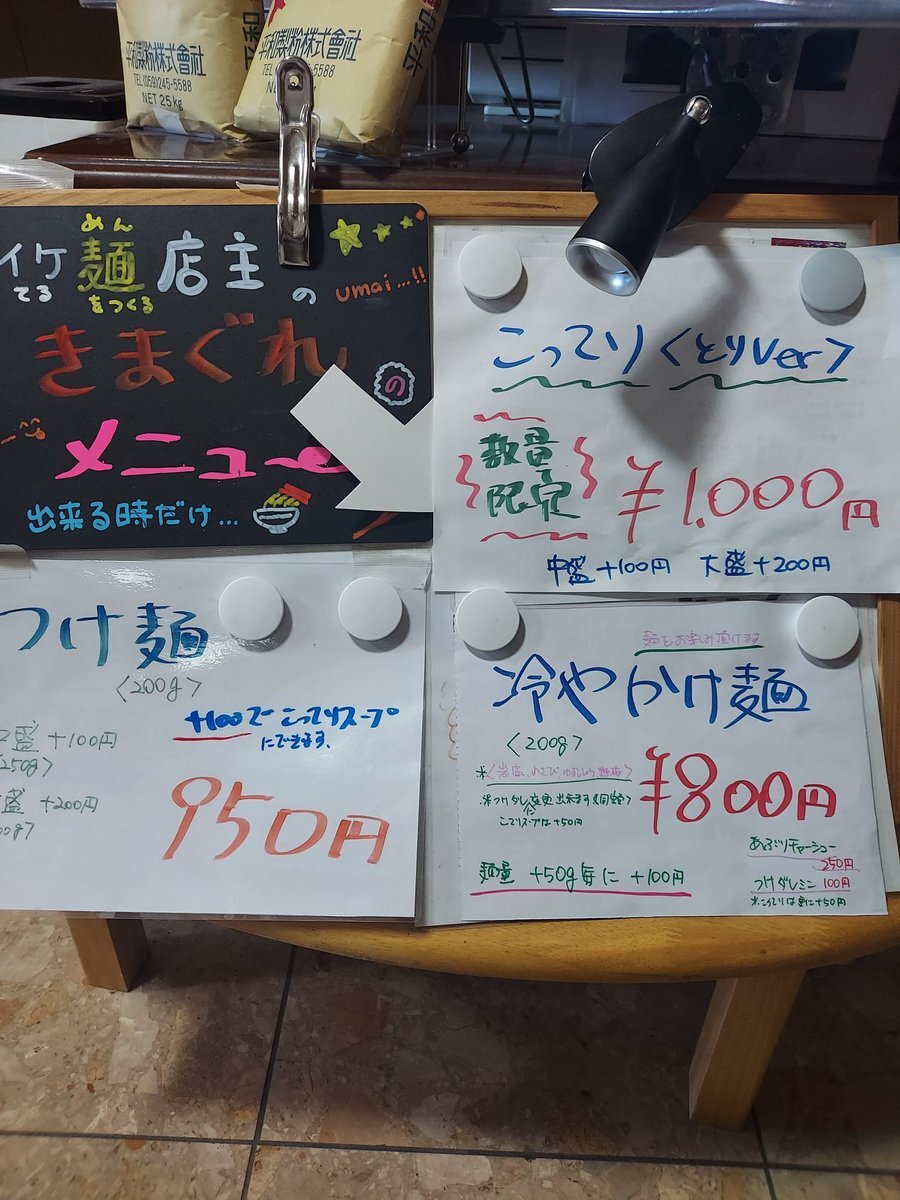 平和製粉株式會社
TEL(059)245-5588
NET 25kg
平和製粉株式會社
TEL
245-5588
平和
めん
イケ麺店主の
てる
をつくる
umai...!!
きまぐれ
の
メニュー
出来る時だけ...
こってり〈とりVer〉
数量
限定
¥1.000円
中盛+100円 大盛+200円
つけ麺
〈200g〉
+100でこってりスープ
にできます.
盛 +100円
250g〉
盛 +200円
950円
麺をお楽しみ頂ける
冷やかけ麺
〈200g〉
¥800円
※つけダレに変更出来ます
こってりスープは+50円
麺量 +50g毎に +100円
あぶりチャーシュー
250円
つけダレミニ 100円
※こってりは更に+50円